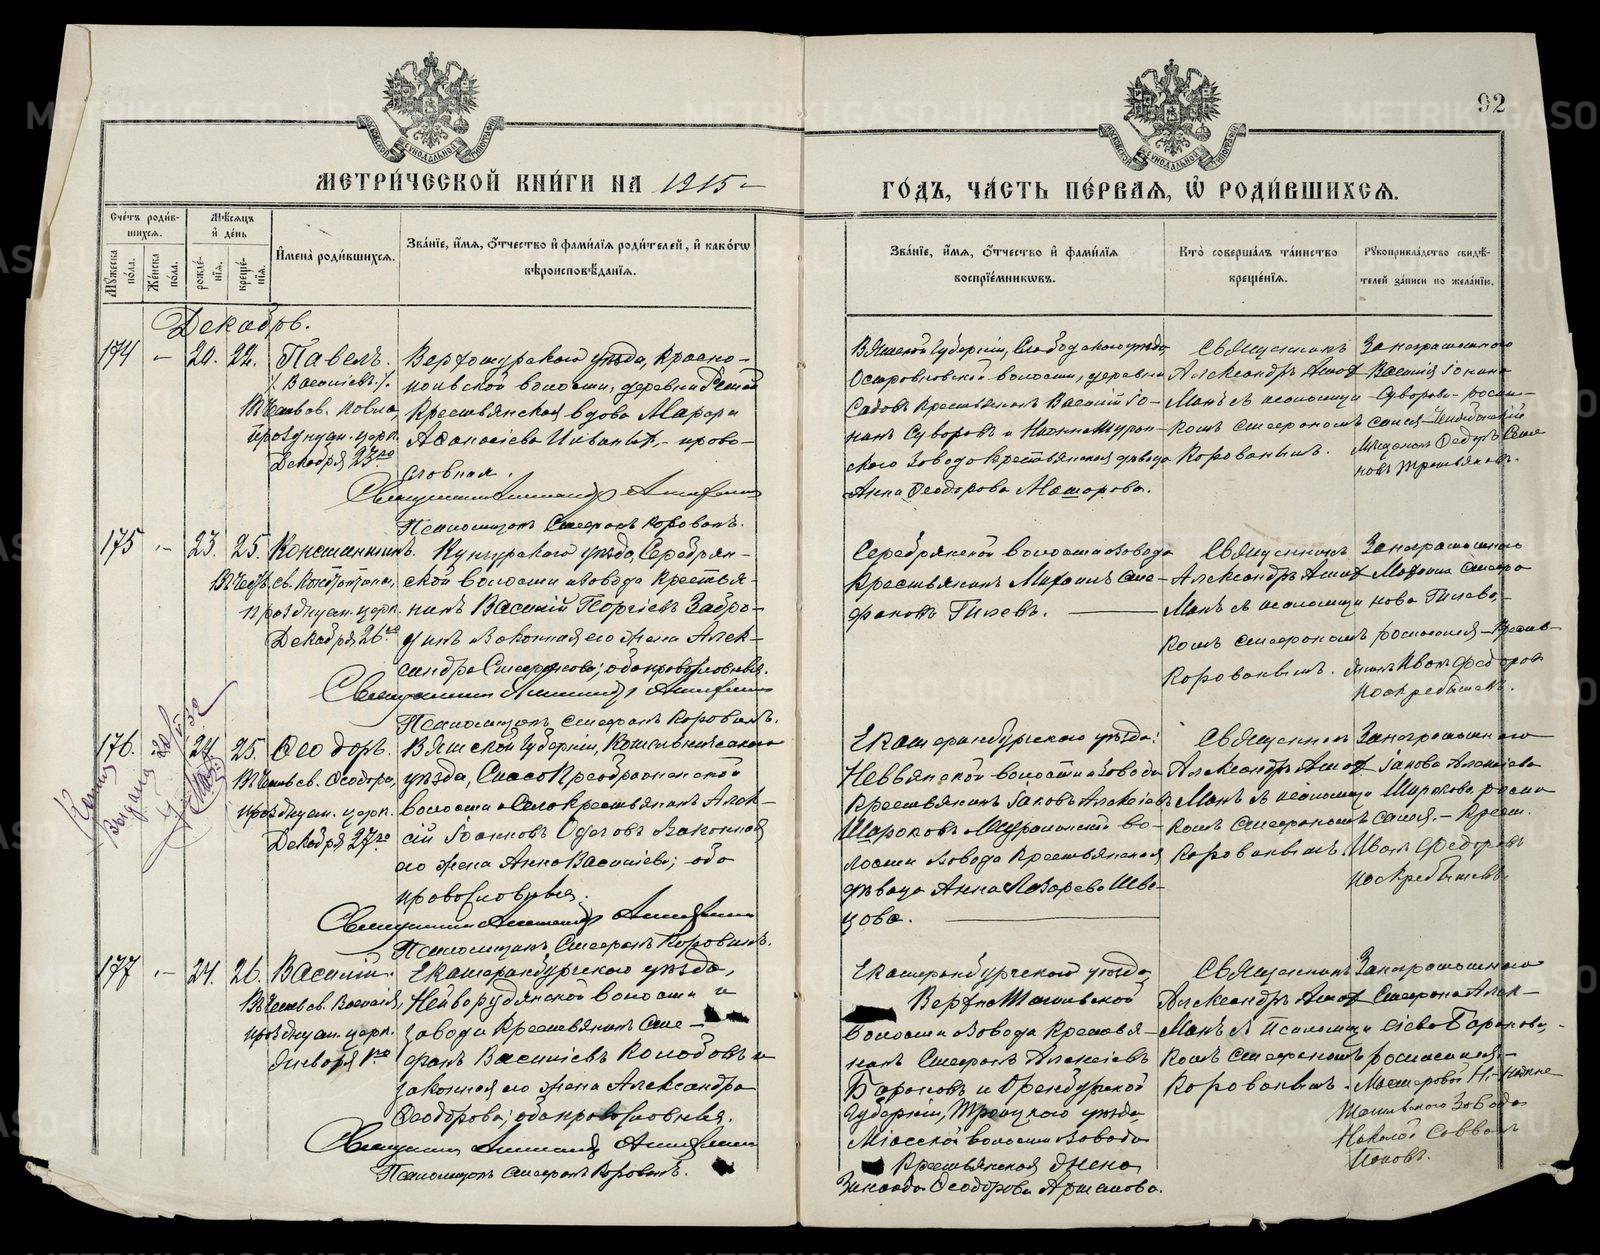 92
МЕТРИ́ЧЕСКОЙ КНИ́ГИ НА 1915
ГО́ДЪ, ЧА́СТЬ ПЕ́РВАЯ, Ѡ҆ РОДИ́ВШИХСЯ.
Сче́тъ роди́вшихся.
Му́жеска пола.
Же́нска пола.
Мѣ́сяцъ и҆ де́нь
рожде́нїя.
креще́нїя.
И҆мена̀ роди́вшихся.
Зва́нїе, и҆́мя, о҆́тчество и҆ фами́лїя роди́телей, и҆ како́гѡ вѣроисповѣ́данїя.
Зва́нїе, и҆́мя, о҆́тчество и҆ фами́лїя воспрїе́мникѡвъ.
Кто̀ соверша́лъ та́инство креще́нїя.
Рꙋкоприкла́дство свидѣ́телей за́писи по жела́нїю.
Декабрь.
174 – 20. 22. Павелъ.
/. Василіевъ ./
Въ честь св. Павла,
празднуем. церк.
Декабря 23го
Верхотурскаго уѣзда, Красно-
польской волости, деревни
Крестьянская вдова Марѳа
Аѳанасіева – право-
славная.
Священникъ Александръ
Псаломщикъ Стефанъ Корованъ.
Вятской Губерніи, Слободскаго уѣзда
Островновской волости, деревни
Садовъ Крестьянинъ Василій Іо-
нинъ Суворовъ и Нижнетурин-
скаго завода Крестьянская дѣвица
Анна Ѳеодорова Машарова.
Священникъ
Александръ
съ псаломщи
комъ Стефаномъ
Корованымъ.
За неграмотнаго
Василія Іонина
Суворова роспи-
сался
Мѣщанинъ Федоръ Семе
новъ Третьяковъ.
175 – 23. 25. Константинъ.
Въ честь св. Константина,
празднуем. церк.
Декабря 26го
Кунгурскаго уѣзда, Серебрян-
ской волости и завода Крестья-
нинъ Василій Георгіевъ Забро-
динъ и законная его жена Алек-
сандра Стефанова; оба православные.
Священникъ Александръ
Псаломщикъ Стефанъ Корованъ.
Серебрянской волости и завода
Крестьянинъ Михаилъ Сте-
фановъ Гилевъ.
Священникъ
Александръ
съ псаломщи
комъ Стефаномъ
Корованымъ.
За неграмотнаго
Михаила Стефа
нова Гилева,
росписался – Кресть-
янинъ Иванъ Федоровъ
Поскребышевъ.
176. – 24. 25. Ѳеодоръ.
Въ честь св. Ѳеодора,
празднуем. церк.
Декабря 27го
Копія
выдана 20
Вятской Губерніи, Котельническаго
уѣзда, Спасо Преображенской
волости и села Крестьянинъ Алек-
сій Іоанновъ Одеговъ и законная
его жена Анна Василіева; оба
православные.
Священникъ Александръ
Псаломщикъ Стефанъ Корованъ.
Екатеринбургскаго уѣзда:
Невьянской волости и завода
Крестьянинъ Іаковъ Алексіевъ
Широковъ и Шуралинской во-
лости и завода Крестьянская
дѣвица Анна Лазарева Шве-
цова.
Священникъ
Александръ
съ псаломщи
комъ Стефаномъ
Корованымъ.
За неграмотнаго
Іакова Алексіева
Широкова роспи
сался. – Крест.
Иванъ Федоровъ
Поскребышевъ
177 – 24. 26. Василій.
Въ честь св. Василія,
празднуем. церк.
Января 1го
Екатеринбургскаго уѣзда,
Нейворудянской волости и
завода Крестьянинъ Сте-
фанъ Василіевъ Колобовъ и
законная его жена Александра
Ѳеодорова; оба православные.
Священникъ Александръ
Псаломщикъ Стефанъ Корованъ.
Екатеринбургскаго уѣзда
Верхнетагильской
волости и завода Крестья-
нинъ Стефанъ Алексіевъ
Бароновъ и Оренбургской
Губерніи, Троицкаго уѣзда
Міасской волости и завода
Крестьянская жена
Зинаида Ѳеодорова
Священникъ
Александръ
съ Псаломщи
комъ Стефаномъ
Корованымъ.
За неграмотнаго
Стефана Алек-
сіева Баронова,
росписался
Мастеровой Нижне
Тагильскаго Завода
Николай Саввинъ
Поповъ.
METRIKI.GASO-URAL.RU